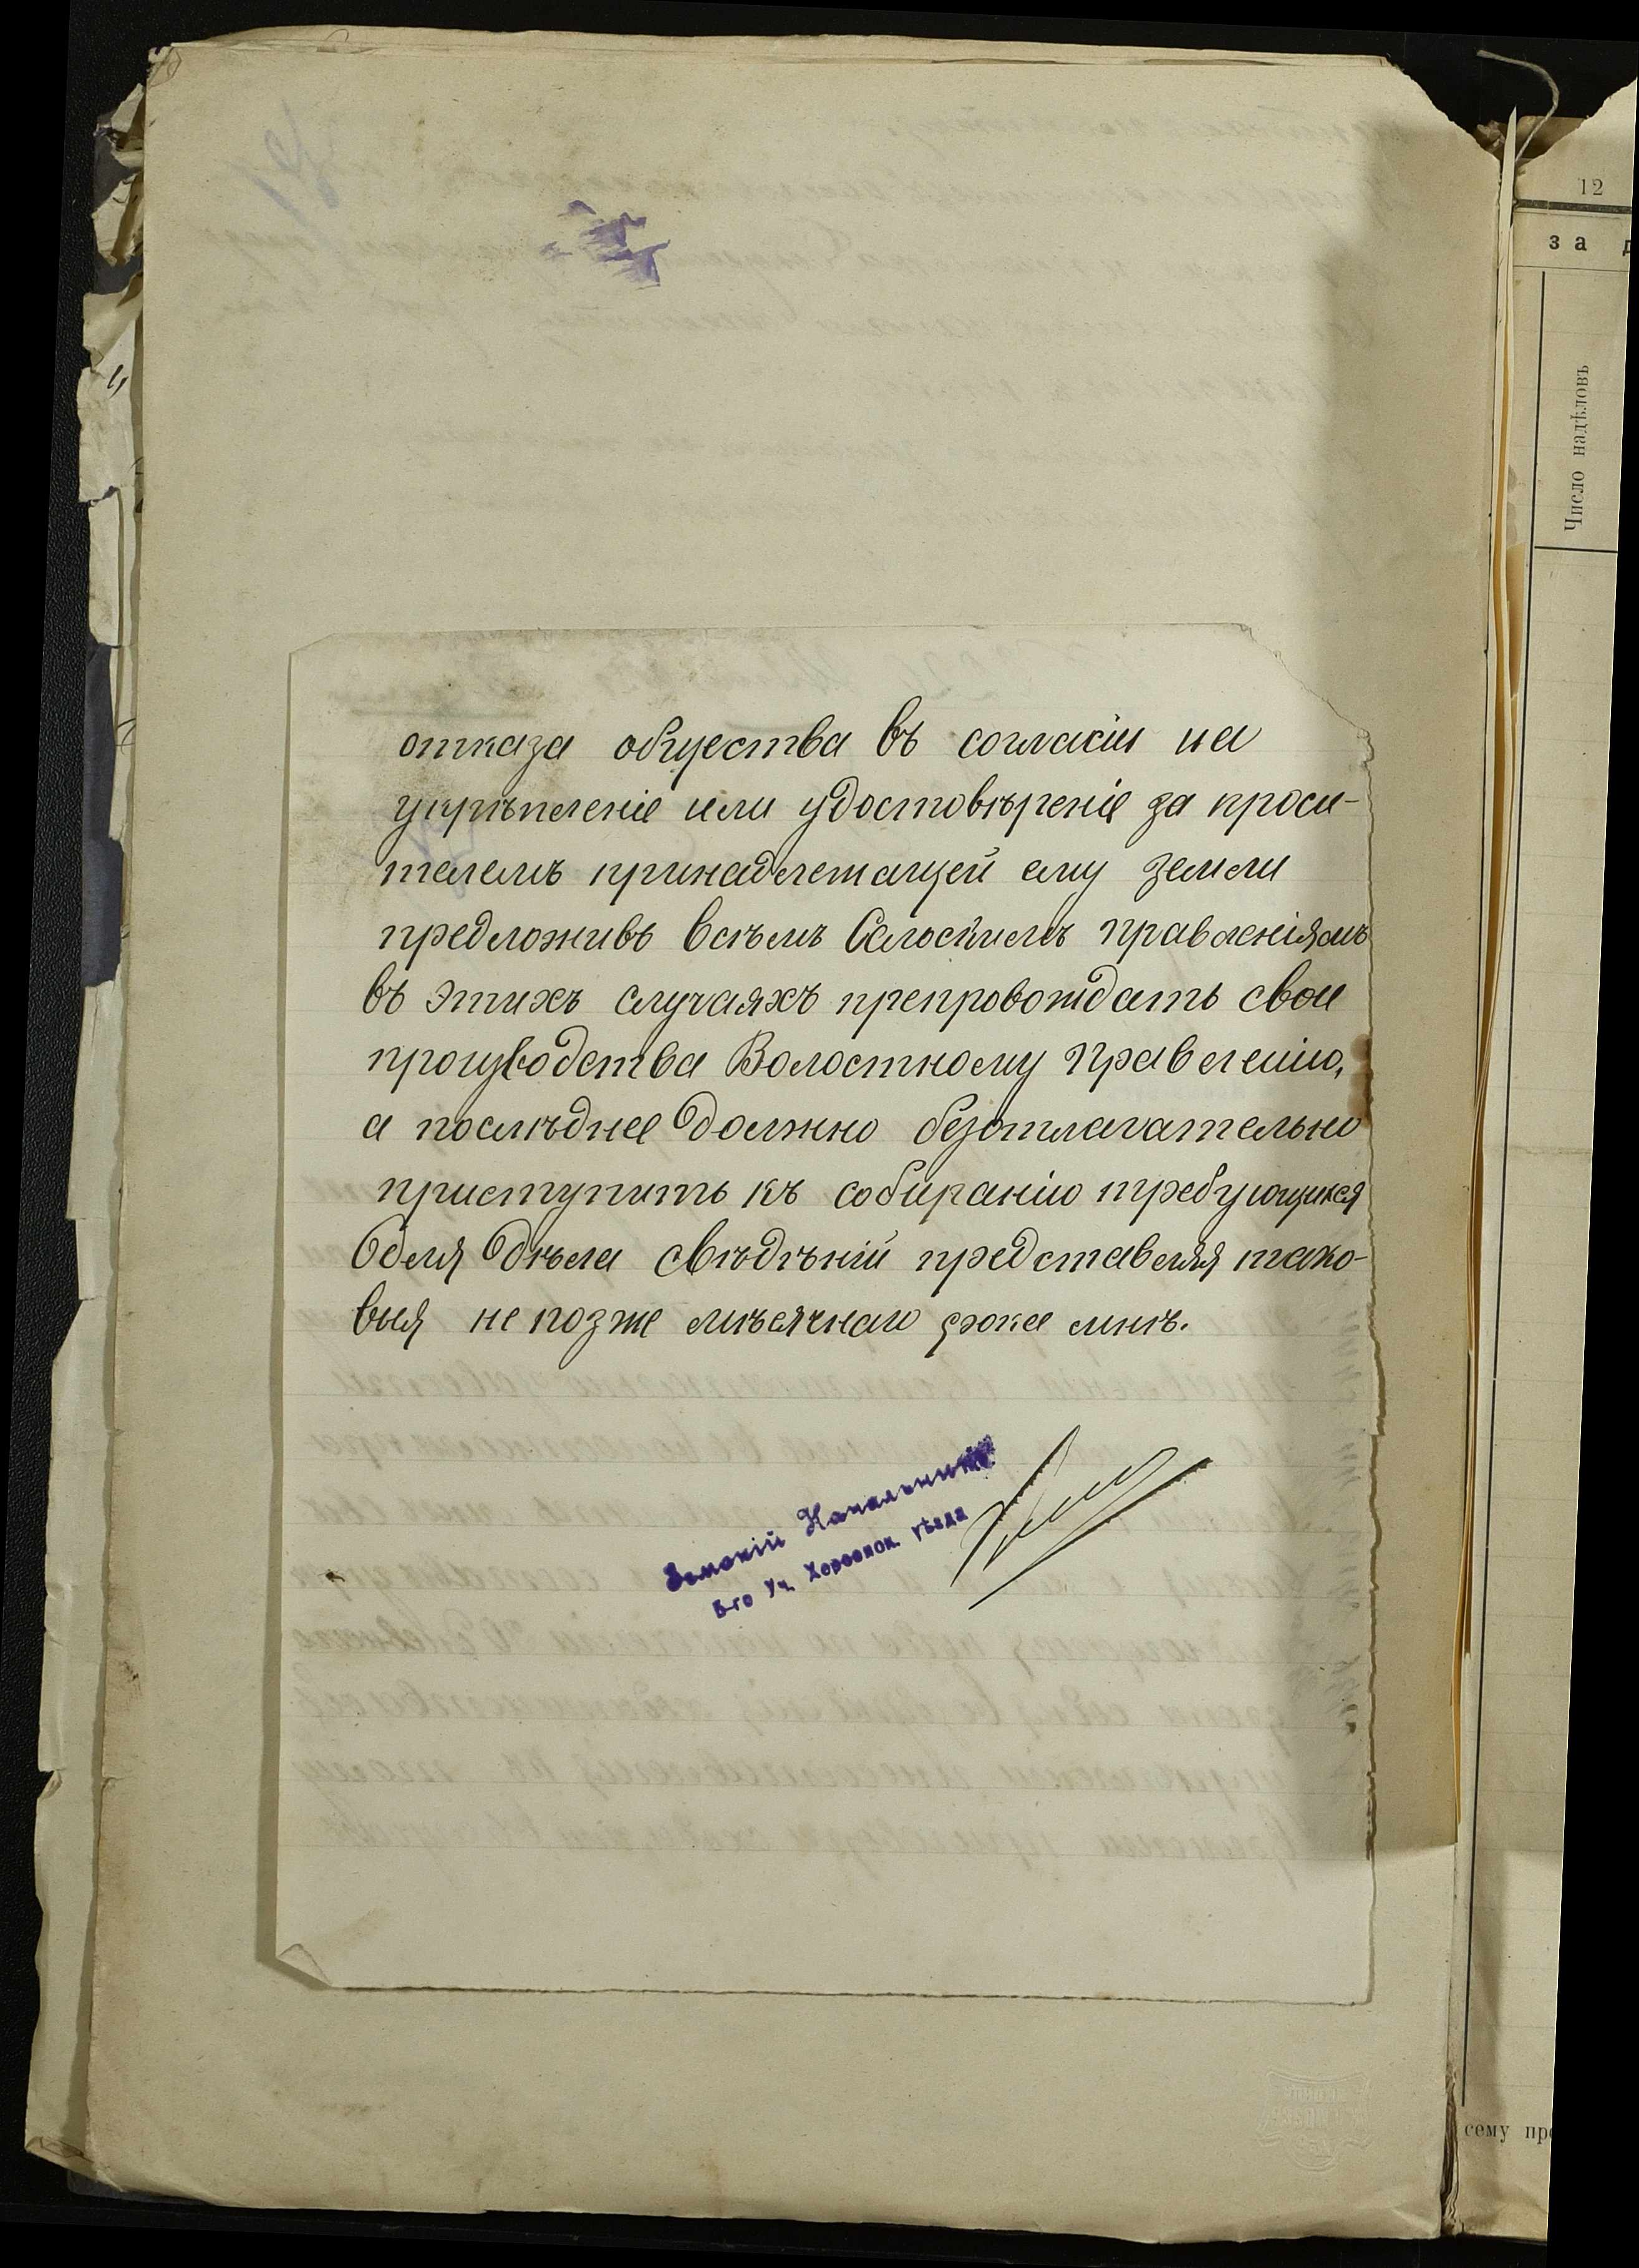 12
за
Число надѣловъ
отказа общества въ согласіи на
укрѣпленіе или удостовѣреніе за проси-
телемъ принадлежащей ему земли
предложивъ всѣмъ Сельскимъ Правленіямъ
въ этихъ случаяхъ препровождать свои
производства Волостному Правленію,
а послѣднее должно безотлагательно
приступить къ собиранію требующихся
для дѣла свѣдѣній представляя тако-
выя не позже мѣсячнаго срока мнѣ.
Земскій Начальникъ
5-го Уч. Херсонск. уѣзда
сему